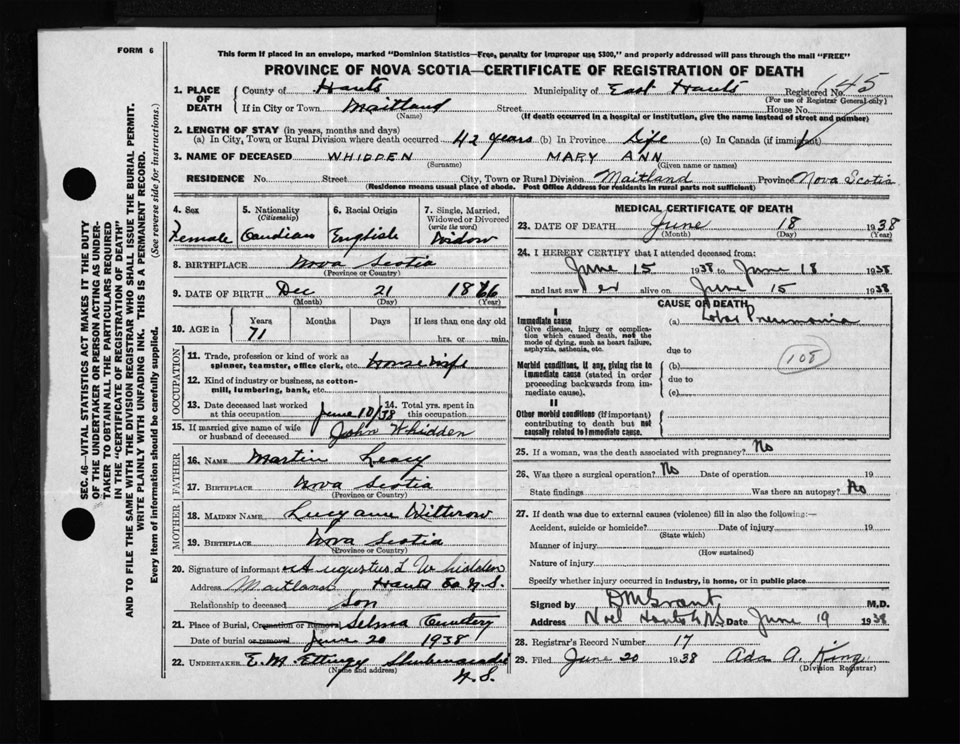 FORM 6
This form if placed in an envelope, marked "Dominion Statistics—Free, penalty for improper use $300," and properly addressed will pass through the mail "FREE"
PROVINCE OF NOVA SCOTIA—CERTIFICATE OF REGISTRATION OF DEATH
SEC. 46—VITAL STATISTICS ACT MAKES IT THE DUTY
OF THE UNDERTAKER OR PERSON ACTING AS UNDER-
TAKER TO OBTAIN ALL THE PARTICULARS REQUIRED
IN THE "CERTIFICATE OF REGISTRATION OF DEATH"
AND TO FILE THE SAME WITH THE DIVISION REGISTRAR WHO SHALL ISSUE THE BURIAL PERMIT.
WRITE PLAINLY WITH UNFADING INK. THIS IS A PERMANENT RECORD.
Every item of information should be carefully supplied. (See reverse side for instructions.)
1. PLACE OF DEATH County of Hants Municipality of East Hants Registered No. 145
(For use of Registrar General only)
If in City or Town Maitland Street House No.
(Name) (If death occurred in a hospital or institution, give the name instead of street and number)
2. LENGTH OF STAY (in years, months and days)
(a) In City, Town or Rural Division where death occurred 42 years (b) In Province Life (c) In Canada (if immigrant)
3. NAME OF DECEASED WHIDDEN MARY ANN
(Surname) (Given name or names)
RESIDENCE No. Street City, Town or Rural Division Maitland Province Nova Scotia
(Residence means usual place of abode. Post Office Address for residents in rural parts not sufficient)
4. Sex Female
5. Nationality (Citizenship) Candian
6. Racial Origin English
7. Single, Married, Widowed or Divorced (write the word) Widow
8. BIRTHPLACE Nova Scotia
(Province or Country)
9. DATE OF BIRTH Dec 21 1866
(Month) (Day) (Year)
10. AGE in Years 71 Months Days If less than one day old hrs. or min.
OCCUPATION
11. Trade, profession or kind of work as spinner, teamster, office clerk, etc. housewife
12. Kind of industry or business, as cotton-mill, lumbering, bank, etc.
13. Date deceased last worked at this occupation June 10/38 14. Total yrs. spent in this occupation
15. If married give name of wife or husband of deceased John Whidden
FATHER
16. NAME Martin Leary
17. BIRTHPLACE Nova Scotia
(Province or Country)
MOTHER
18. MAIDEN NAME Lucy ann Withrow
19. BIRTHPLACE Nova Scotia
(Province or Country)
20. Signature of informant Augustus L Whidden
Address Maitland Hants Co N.S.
Relationship to deceased Son
21. Place of Burial, Cremation or Removal Selma Cemetery
Date of burial or removal June 20 1938
22. UNDERTAKER E. M. Ettinger Shubenacadie N.S.
(Name and address)
MEDICAL CERTIFICATE OF DEATH
23. DATE OF DEATH June 18 1938
(Month) (Day) (Year)
24. I HEREBY CERTIFY that I attended deceased from:
June 15 1938 to June 18 1938
and last saw h er alive on June 15 1938
CAUSE OF DEATH
I
Immediate cause (a) Lobar Pneumonia
Give disease, injury or complication which caused death, not the mode of dying, such as heart failure, asphyxia, asthenia, etc.
due to
108
Morbid conditions, if any, giving rise to immediate cause (stated in order proceeding backwards from immediate cause).
(b)
due to
(c)
II
Other morbid conditions (if important) contributing to death but not causally related to immediate cause.
25. If a woman, was the death associated with pregnancy? No
26. Was there a surgical operation? No Date of operation 19
State findings Was there an autopsy? No
27. If death was due to external causes (violence) fill in also the following:—
Accident, suicide or homicide? Date of injury 19
(State which)
Manner of injury
(How sustained)
Nature of injury
Specify whether injury occurred in industry, in home, or in public place
Signed by D M Grant M.D.
Address Noel Hants Co NS Date June 19 1938
28. Registrar's Record Number 17
29. Filed June 20 1938 Ada A. King
(Division Registrar)